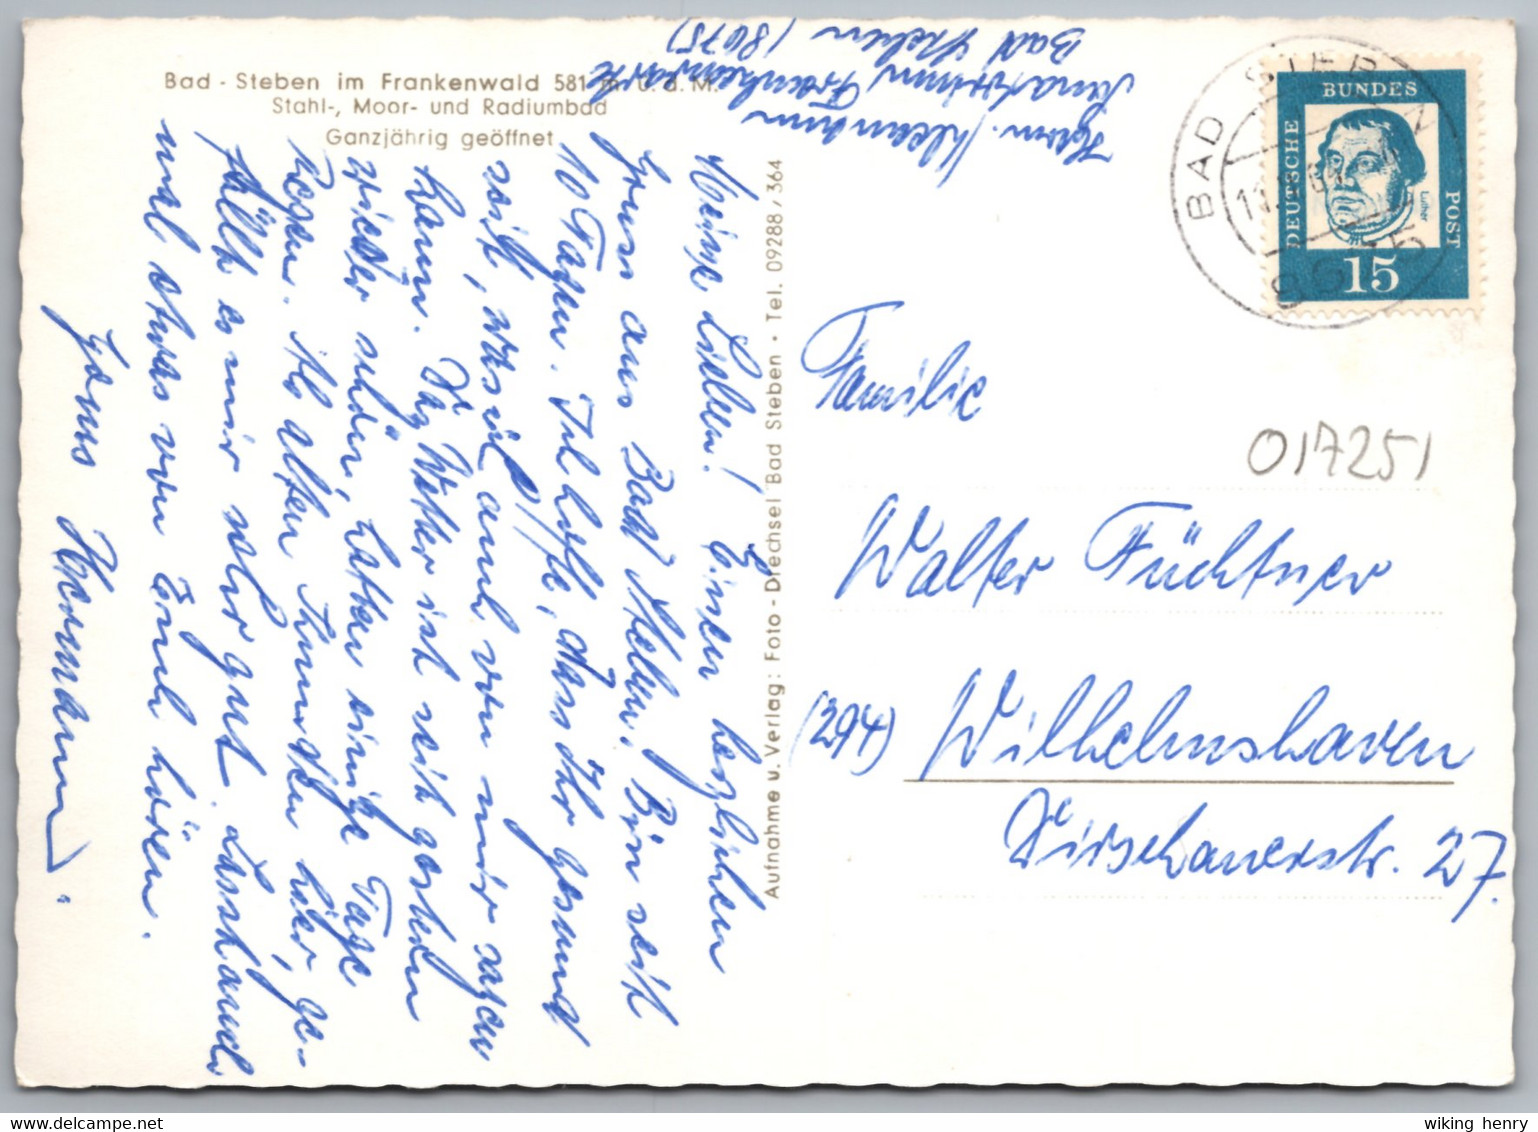 Bad - Steben im Frankenwald 581 m ü. d. M.
Stahl-, Moor- und Radiumbad
Ganzjährig geöffnet
Herm.
Bad Steben (8675)
Meine Lieben! Einen herzlichen
Gruss aus Bad Steben. Bin seit
10 Tagen. Ich hoffe, dass Ihr gesund
seid, was ich auch von mir sagen
kann. Das Wetter ist seit gestern
wieder schön, hatten einige Tage
Regen. Als alten Kunden hier ge-
fällt es mir sehr gut. Lasst auch
mal etwas von Euch hören.
Gruss Hermann.
Aufnahme u. Verlag: Foto - Drechsel Bad Steben • Tel. 09288 / 364
BAD STEBEN
8675
DEUTSCHE BUNDES POST
Luther
15
017251
Familie
Walter Füchtner
(294) Wilhelmshaven
Dirschauerstr. 27.
wiking henry